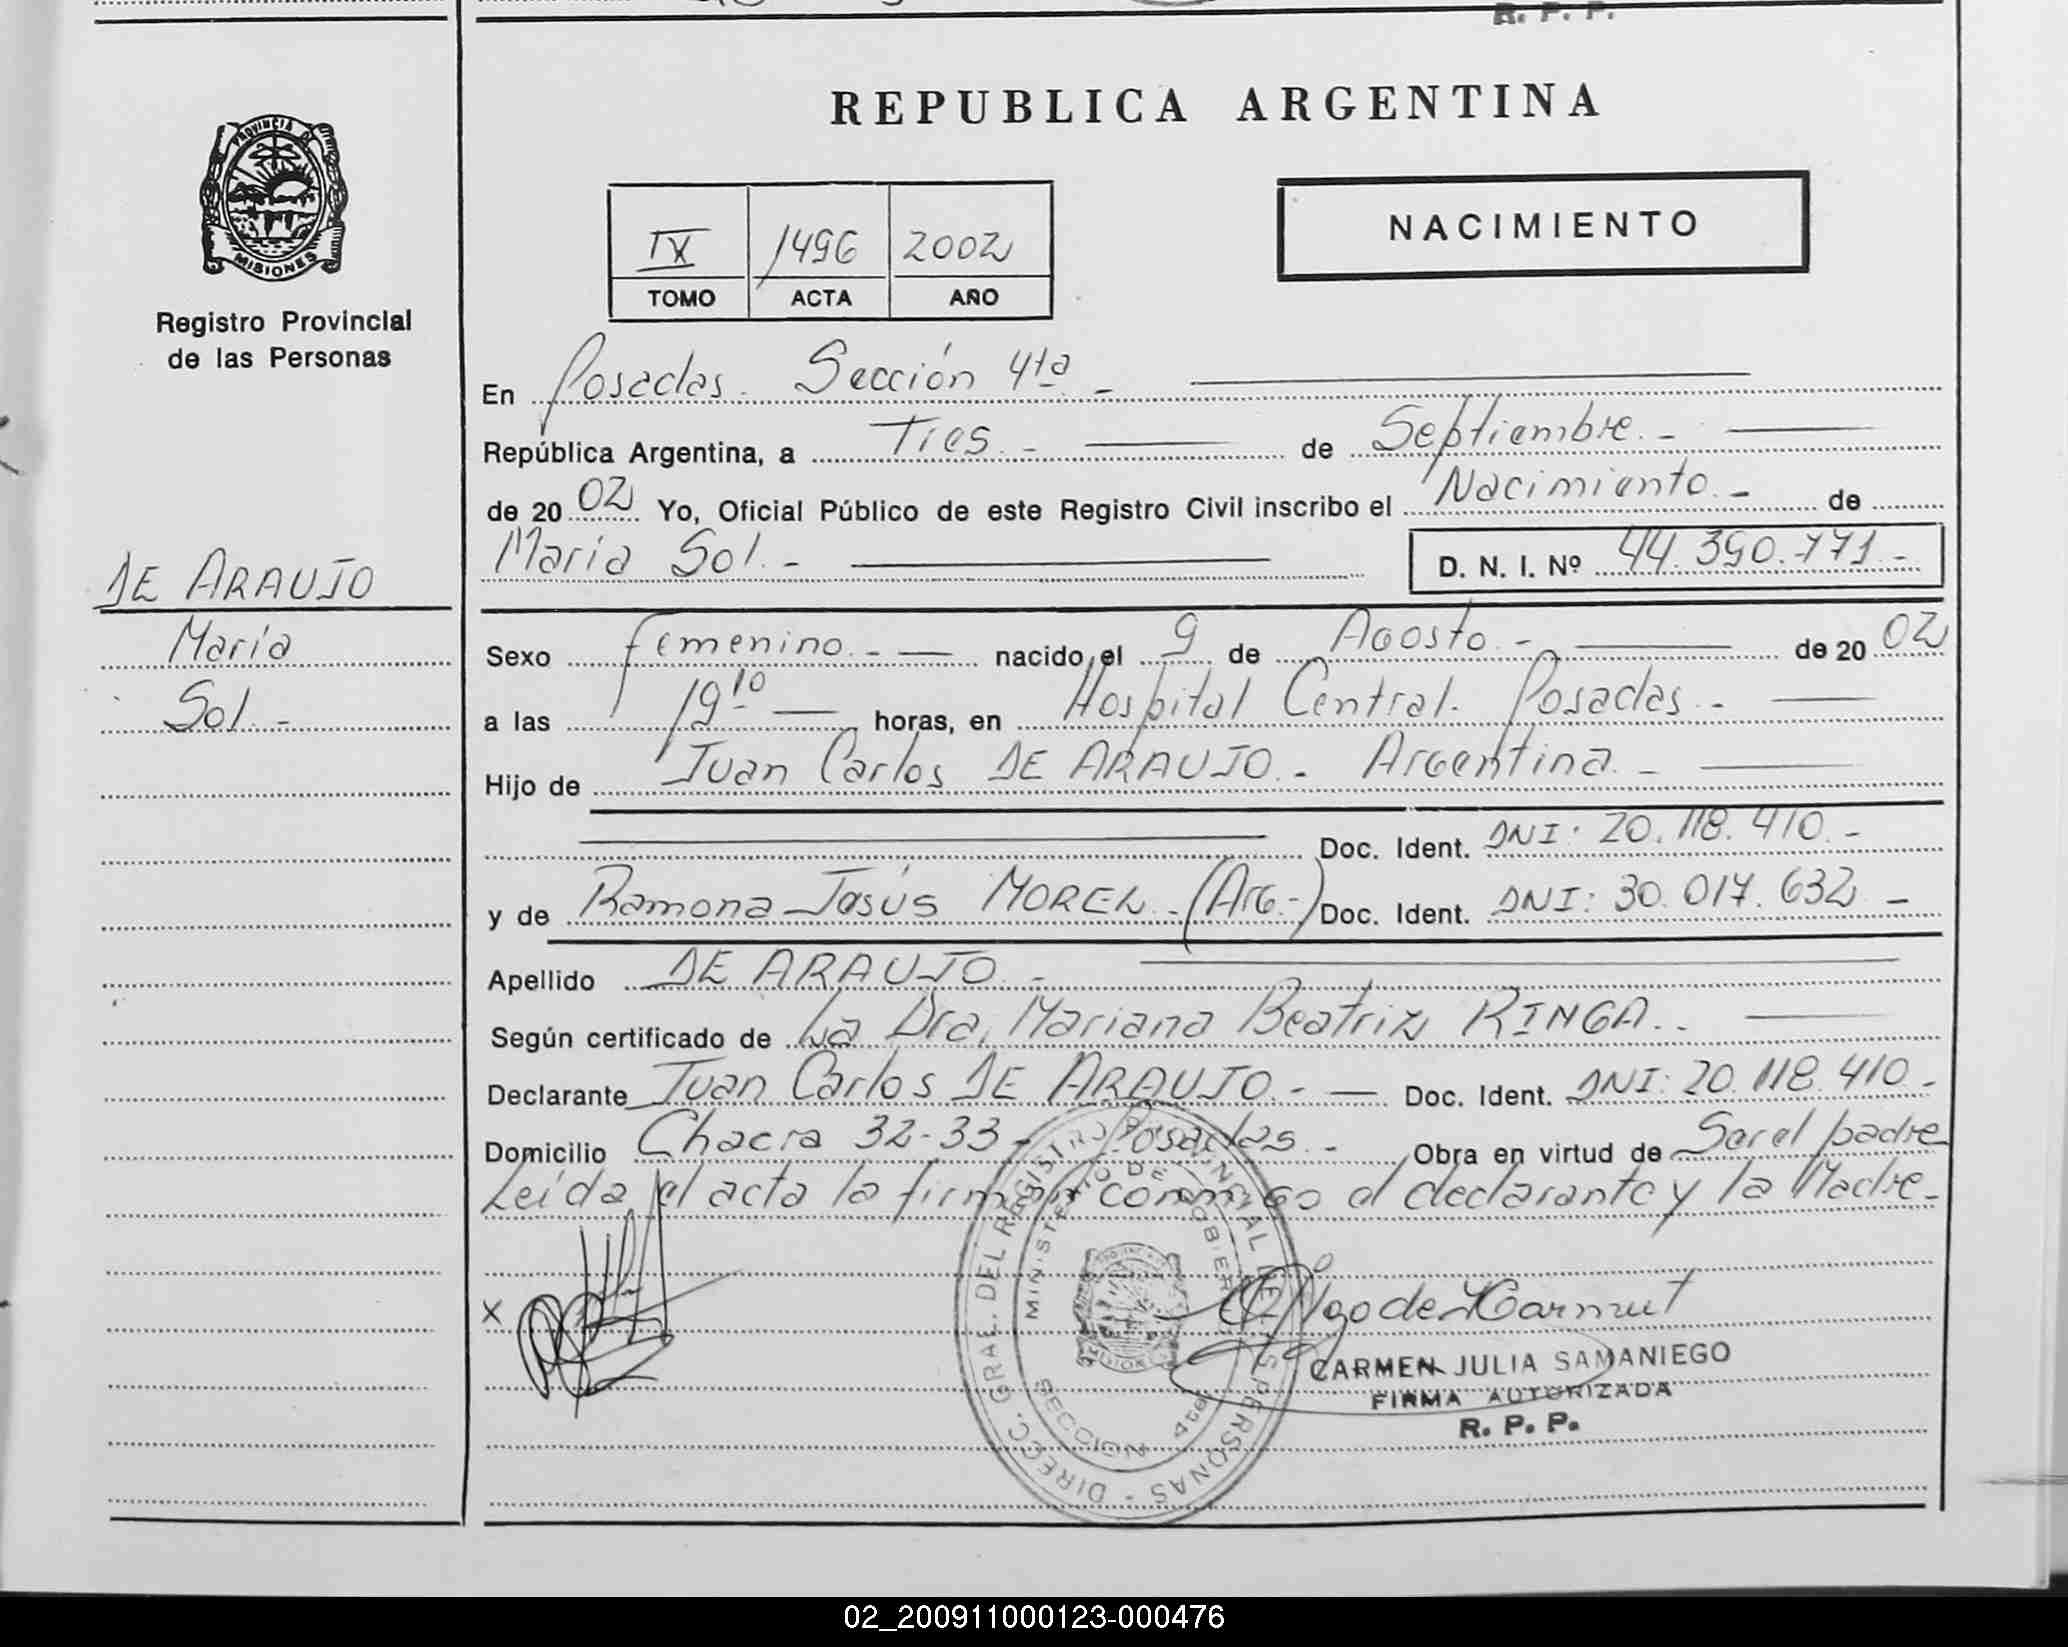 R. P. P.
REPUBLICA ARGENTINA
PROVINCIA DE
MISIONES
Registro Provincial
de las Personas
IX 1496 2002
TOMO ACTA AÑO
NACIMIENTO
En Posadas. Sección 4ta -
República Argentina, a Tres. - de Septiembre. -
de 20 02 Yo, Oficial Público de este Registro Civil inscribo el Nacimiento. - de
María Sol. - D. N. I. Nº 44.390.771.-
DE ARAUJO
María
Sol. -
Sexo femenino. - nacido el 9 de Agosto. - de 20 02
a las 19 10 horas, en Hospital Central. Posadas. -
Hijo de Juan Carlos DE ARAUJO. - Argentina. -
Doc. Ident. DNI: 20.118.410. -
y de Ramona Jesús MOREL. - (Arg.-) Doc. Ident. DNI: 30.017.632 -
Apellido DE ARAUJO. -
Según certificado de La Dra. Mariana Beatriz RINGA. -
Declarante Juan Carlos DE ARAUJO. - Doc. Ident. DNI: 20.118.410 -
Domicilio Chacra 32-33 - Posadas. - Obra en virtud de Ser el padre
Leída el acta la firman conmigo el declarante y la Madre. -
X
DIRECC. GRAL. DEL REGISTRO PROVINCIAL DE LAS PERSONAS -
MINISTERIO DE GOBIERNO
SECCION 4ta
CARMEN JULIA SAMANIEGO
FIRMA AUTORIZADA
R. P. P.
02_200911000123-000476